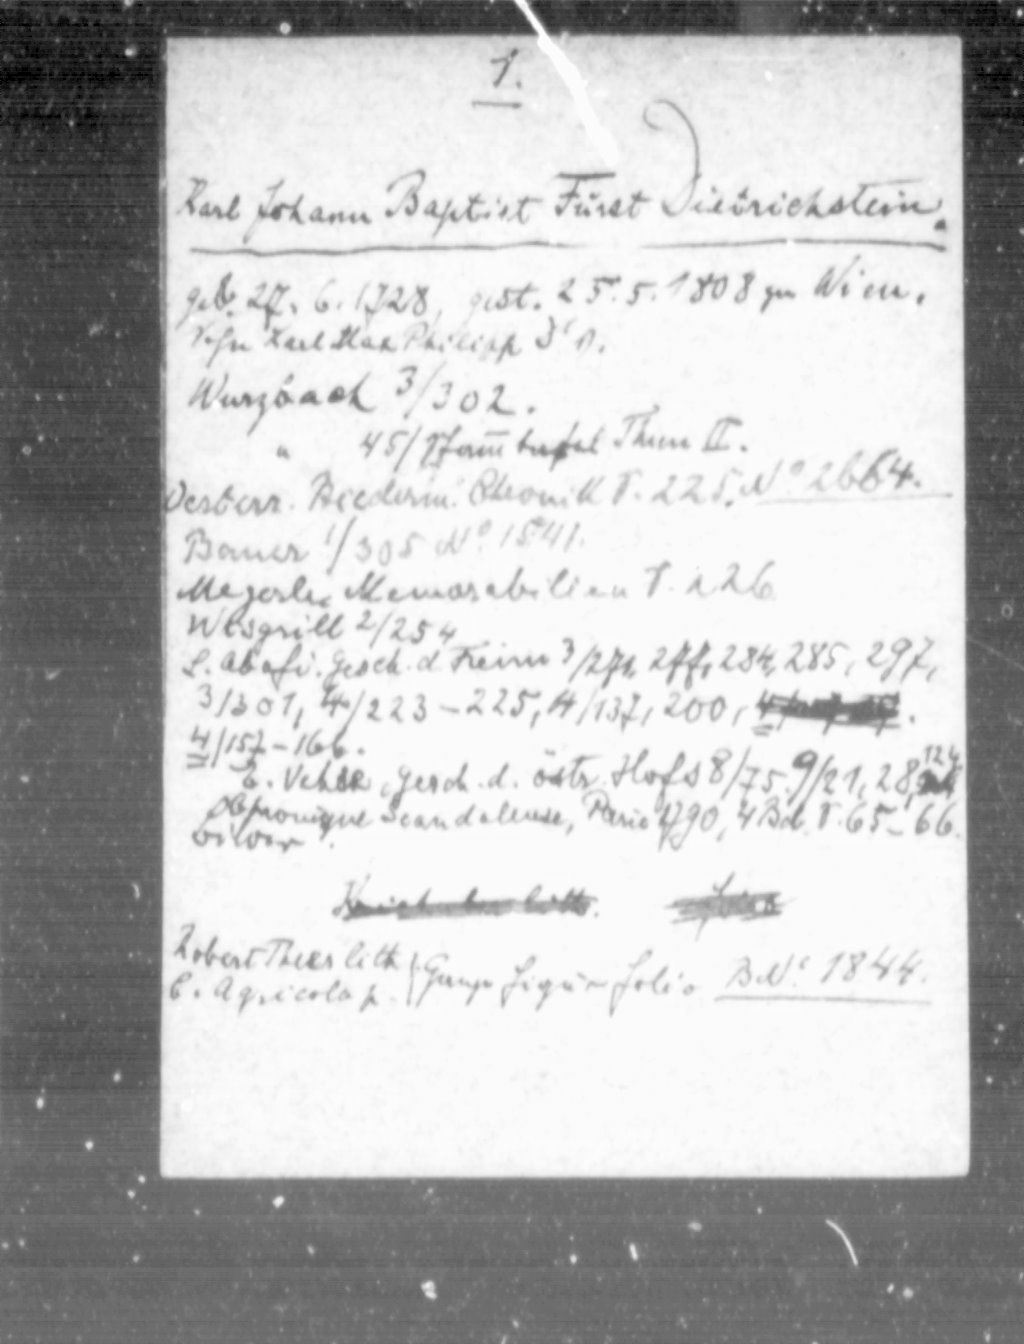 1.
Karl Johann Baptist Fürst Dietrichstein.
geb. 27. 6. 1728, gest. 25. 5. 1808 zu Wien.
Karl Max Philipp
Wurzbach 3/302.
" 45/ Stammtafel Thun II.
Oesterr. Biederm. Chronik S. 225. No 2664.
1/305 No 1541.
Megerle, Memorabilien S. 226
Wisgrill 2/254
L. Abafi. Gesch. d. Freim 3/271, 277, 284, 285, 297,
3/301, 4/223-225, 4/137, 200,
4/157-166.
E. Vehse, Gesch. d. östr. Hofs 8/75. 9/21, 28, 124
Chronique Scandaleuse, Paris 1790, 4 Bd. S. 65-66.
Robert Theer lith
E. Agricola p. Ganze Figur Folio BNo 1844.